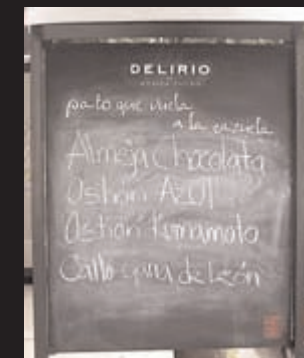 DELIRIO
pato que vuela
a la cazuela
Almeja Chocolata
Ostión Azul
Ostión Kumamoto
Callo garra de León